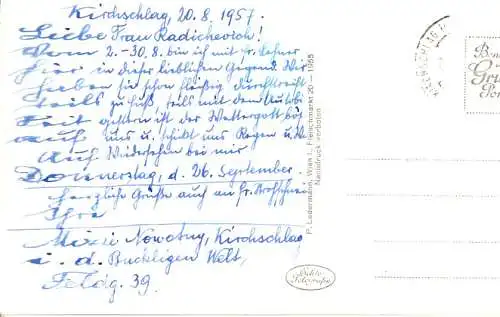 Kirchschlag, 20.8.1957.
Liebe Frau Radichevich!
Vom 2.-30.8. bin ich mit fr. Lehner
hier in dieser lieblichen Gegend. Wir
haben sie schon fleißig durchstreift
teils zu fuß, teils mit dem Autobi
Seit gestern ist der Wettergott bös
auf uns u. schikt uns Regen u. Wi
Auf Wiedersehen bei mir
Donnerstag, d. 26. September
herzliche Grüße auch an fr.
Ihre
Mizzi Nowotny, Kirchschlag
i. d. Buckligen Welt,
Feldg. 39.
P. Ledermann, Wien I., Fleischmarkt 20 — 1955
Nachdruck verboten
KIRCHSCHLAG I
Echte
Fotografie